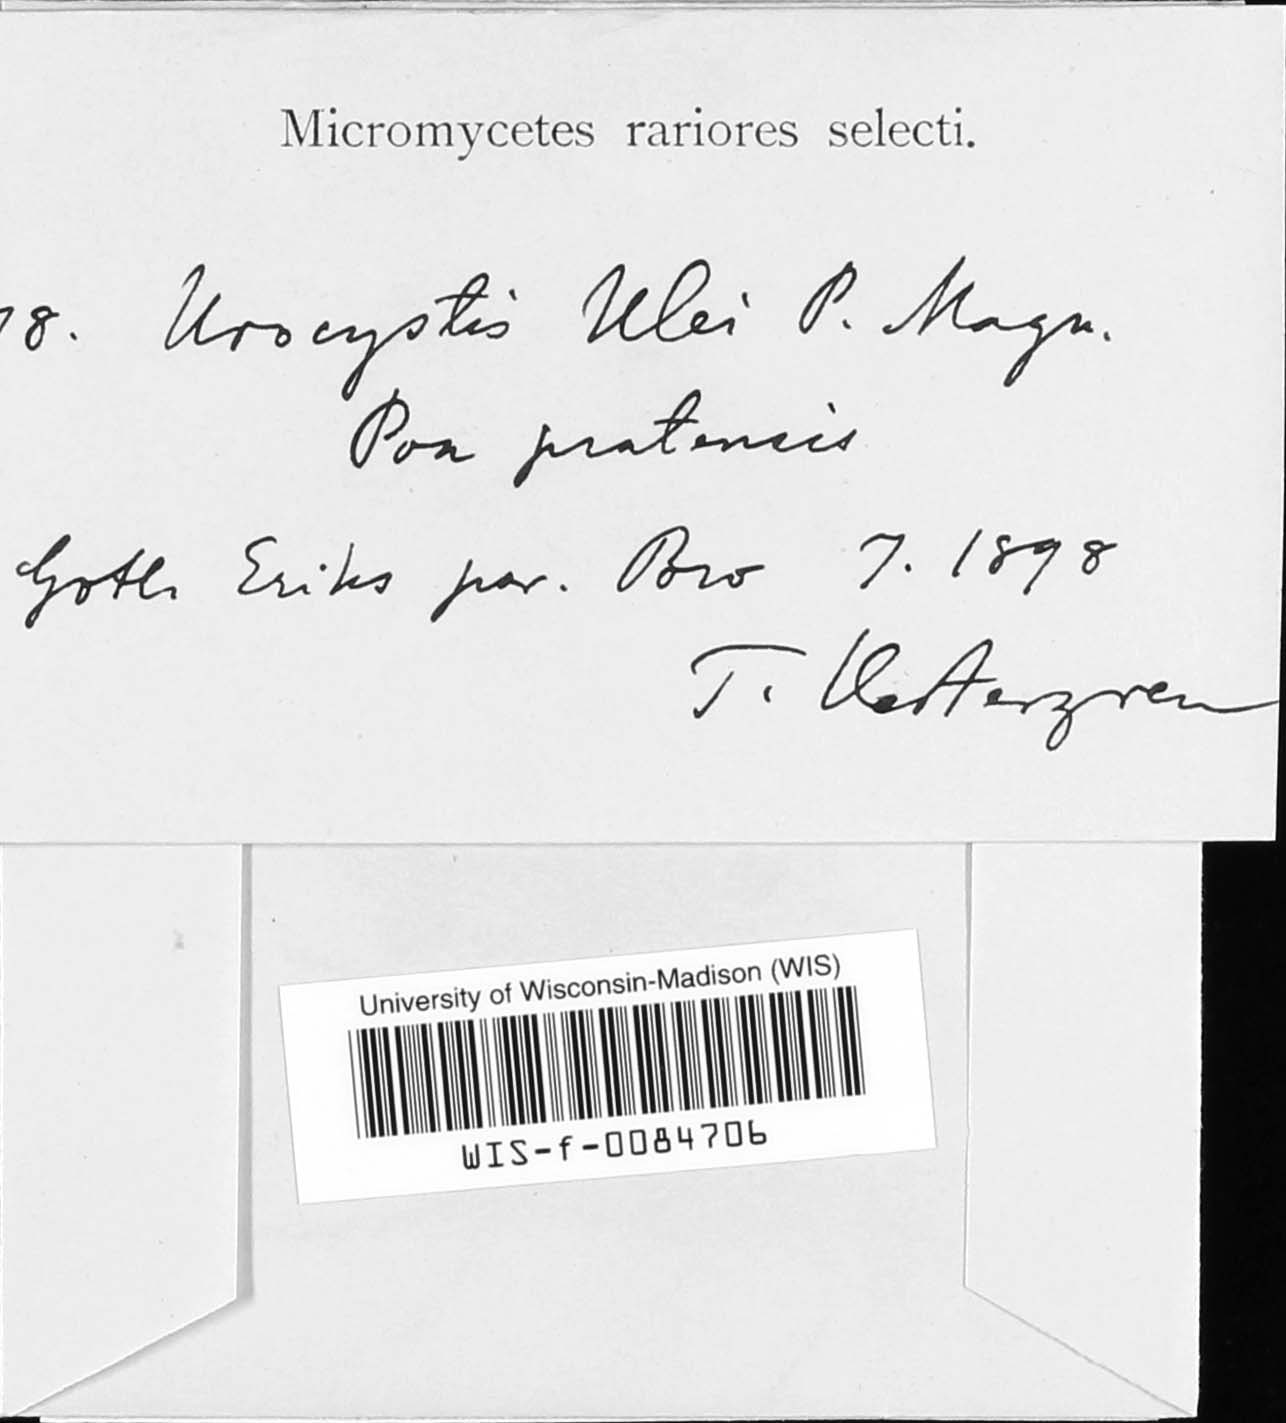 Micromycetes rariores selecti.
78. Urocystis Ulei P. Magn.
Poa pratensis
Gotl. Eriks par. Bro 7. 1898
T. Vestergren
University of Wisconsin-Madison (WIS)
WIS-f-0084706